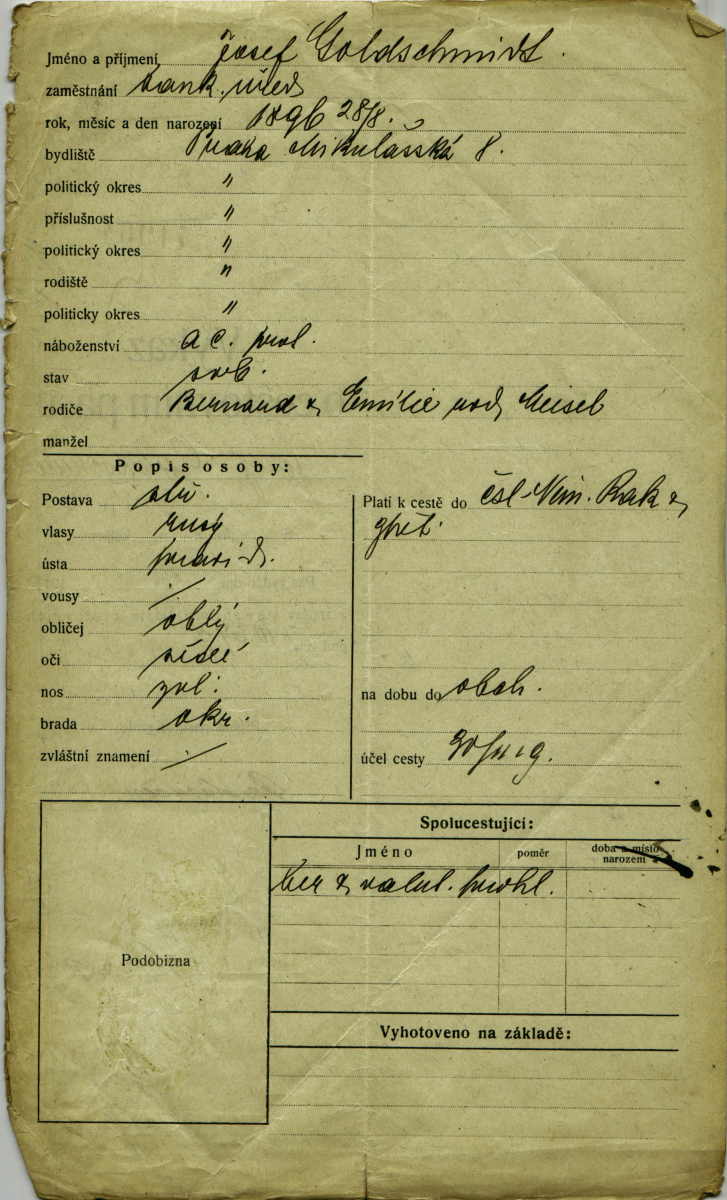 Jméno a příjmení Josef Goldschmidt.
zaměstnání bank. úřed
rok, měsíc a den narození 1896 28/8.
bydliště Praha Mikulášská 8.
politický okres "
příslušnost "
politický okres "
rodiště "
politicky okres "
náboženství
stav svob.
rodiče Bernard & Emilie roz Meisel
manžel
Popis osoby:
Postava stř.
vlasy rusý
ústa pravid.
vousy /
obličej oblý
oči
nos
brada okr.
zvláštní znamení /
Platí k cestě do čsl. Něm. Rak &
zpět.
na dobu do obch.
účel cesty
Podobizna
Spolucestující:
Jméno poměr doba a místo narození
ber & valut. prohl.
Vyhotoveno na základě: